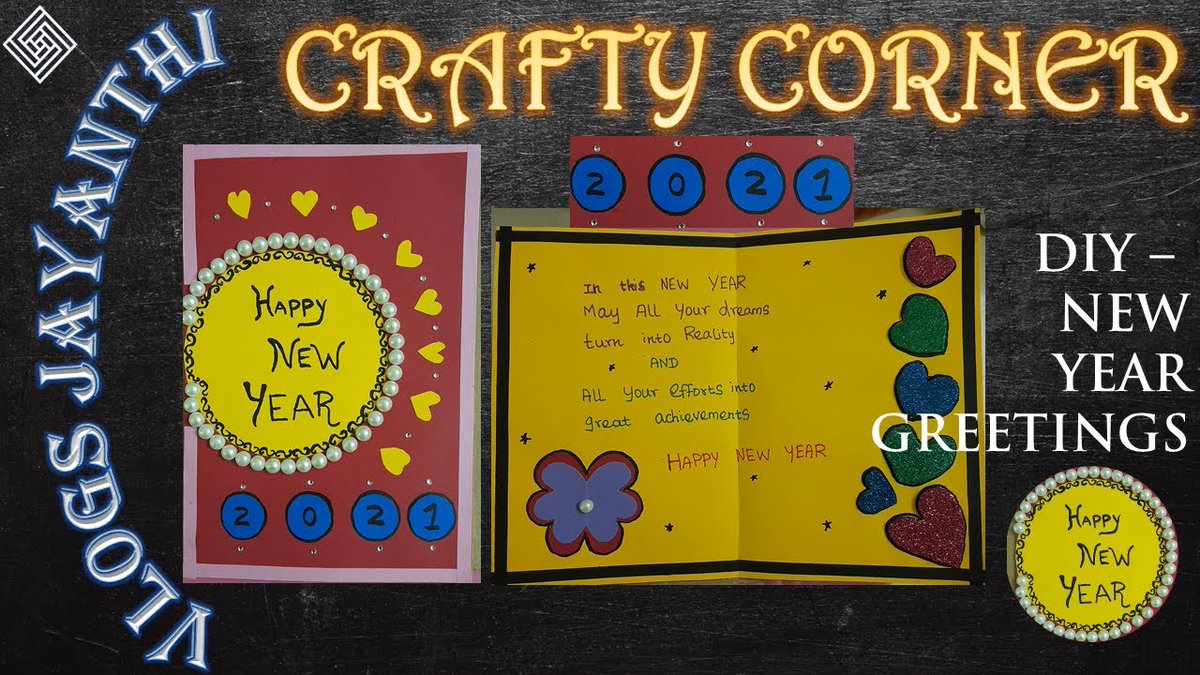 CRAFTY CORNER
VLOGS JAYANTHI
Happy
NEW
YEAR
2 0 2 1
2 0 2 1
In this NEW YEAR
May All Your dreams
turn into Reality
AND
All Your efforts into
great achievements
HAPPY NEW YEAR
DIY –
NEW
YEAR
GREETINGS
Happy
NEW
YEAR